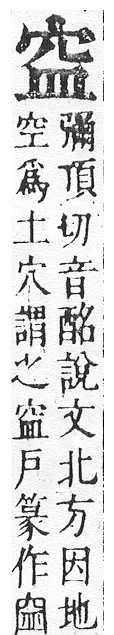 𥁓
彌頂切音酩說文北方因地
空爲土穴謂之𥁓戶篆作